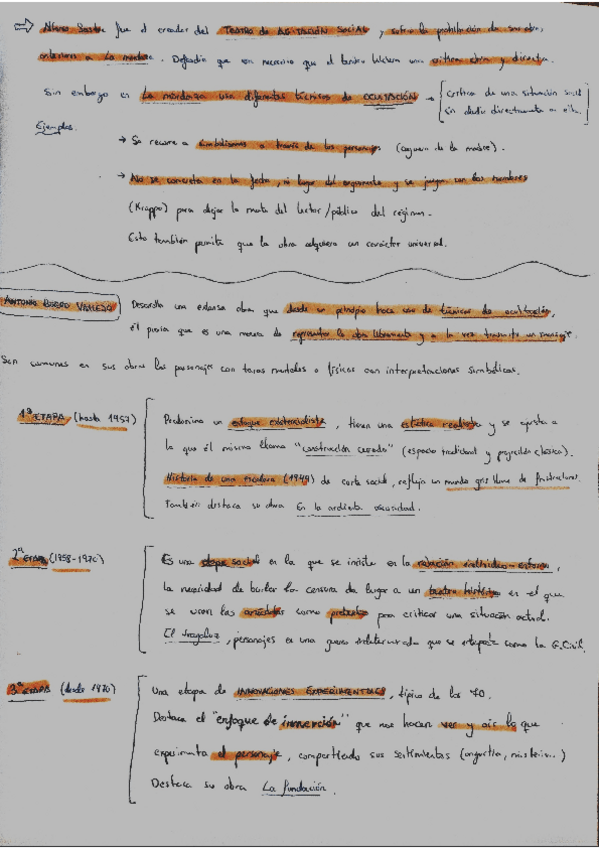 ⇒ Alfonso Sastre fue el creador del TEATRO DE AGITACIÓN SOCIAL, sufrió la prohibición de sus obras
anteriores a La mordaza. Defendía que era necesario que el teatro hiciera una crítica clara y directa.
Sin embargo en La mordaza usa diferentes técnicos de OCULTACIÓN → [crítica de una situación social
sin aludir directamente a ella.]
Ejemplos.
→ Se recurre a simbolismos a través de los personajes (ceguera de la madre).
→ No se concreta en la fecha, ni lugar del argumento y se juegan con los nombres
(Krappo) para alejar la mente del lector/público del régimen.
Esto también permite que la obra adquiera un carácter universal.
ANTONIO BUERO VALLEJO Desarrolla una extensa obra que desde un principio hace uso de técnicas de ocultación,
él decía que es una manera de representar la obra libremente y a la vez transmitir un mensaje.
Son comunes en sus obras los personajes con taras mentales o físicas con interpretaciones simbólicas.
1ª ETAPA (hasta 1957) Predomina un enfoque existencialista, tienen una estética realista y se ajusta a
la que él mismo llama "construcción cerrada" (espacio tradicional y progresión clásica).
Historia de una escalera (1949) de corte social, refleja un mundo gris lleno de frustraciones.
También destaca su obra En la ardiente oscuridad.
2ª ETAPA (1958-1970) Es una etapa social en la que se insiste en la relación individuo-entorno,
la necesidad de burlar la censura da lugar a un teatro histórico en el que
se usan las como pretexto para criticar una situación actual.
El tragaluz, personajes en una guerra indeterminada que se interpreta como la G.Civil.
3ª ETAPA (desde 1970) Una etapa de INNOVACIONES EXPERIMENTALES, típico de los 70.
Destaca el "enfoque de inmersión" que nos hacen ver y oír lo que
experimenta el personaje, compartiendo sus sentimientos (angustia, misterio...)
Destaca su obra La fundación.